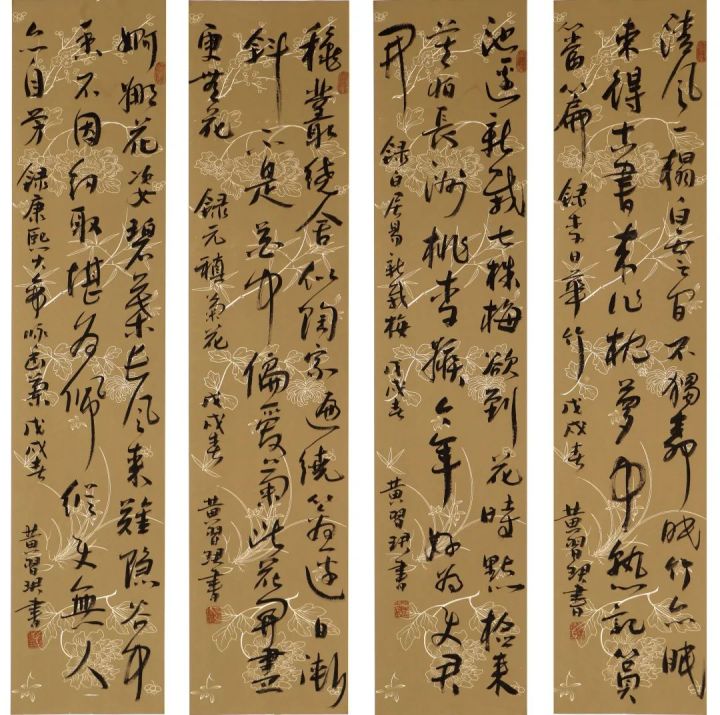 清風一榻白雲間不獨眠竹亦眠
束得古書來作枕夢中熟記筼
簹篇 錄李日華竹 戊戌春 黄習珙書
池邊新栽七株梅欲到花時點檢來
莫怕長洲桃李嫉今年好為使君
開 錄白居易新栽梅 戊戌春 黄習珙書
穐叢繞舍似陶家遍繞籬邊日漸
斜不是花中偏愛菊此花開盡
更無花 錄元稹菊花 戊戌春 黄習珙書
婀娜花姿碧葉長風來難隱谷中
香不因紉取堪為佩縱使無人
亦自芳 錄康熙大帝咏幽蘭 戊戌春 黄習珙書